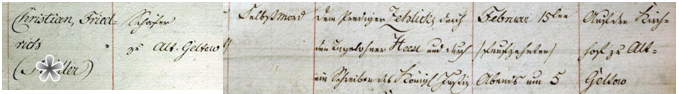 Christian, Fried-
rich
(Müller)
Schäfer
zu Alt-Geltow
Selbstmord
Dem Prediger Zehlicke, durch
den Tagelöhner Heese und durch
ein Schreiben des Königl. Justiz
Februar 15ten
(funfzehnten)
Abends um 5
Auf dem Kirch-
hof zu Alt-
Geltow